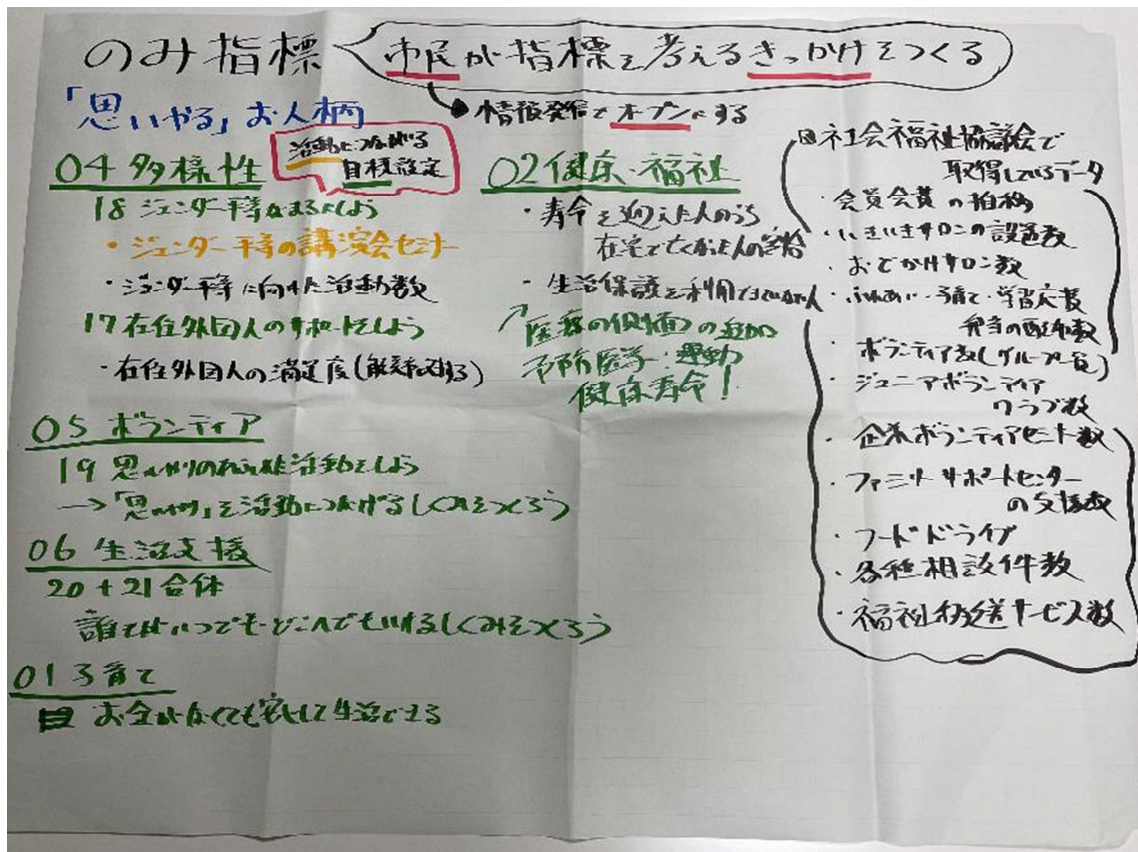 のみ指標
市民が指標を考えるきっかけをつくる
●情報発信でオープンにする
「思いやる」お人柄
活動につなげる
目標設定
04 多様性
18 ジェンダー平等をまるにしよう
・ジェンダー平等の講演会セミナー
・ジェンダー平等に向けた活動数
17 在住外国人のサポートをしよう
・在住外国人の満足度(
05 ボランティア
19 思いやりの 活動をしよう
→「思いやり」を活動につなげるしくみをつくろう
06 生活支援
20+21合体
誰でもいつでも・どこへでもいけるしくみをつくろう
01 子育て
お金がなくても安心して生活できる
02 健康・福祉
・寿命を迎えた人のうち
在宅で亡くなった人の割合
・生活保護を利用できていない人
医療の側面の追加
予防医学・運動
健康寿命!
社会福祉協議会で
取得しているデータ
・会員会費の推移
・いきいきサロンの設置数
・おでかけサロン数
・ふれあい・子育て・学習応援
弁当の配布数
・ボランティア数(グループ一覧)
・ジュニアボランティア
クラブ数
・企業ボランティアセンター数
・ファミリーサポートセンター
の支援数
・フードドライブ
・各種相談件数
・福祉移送サービス数